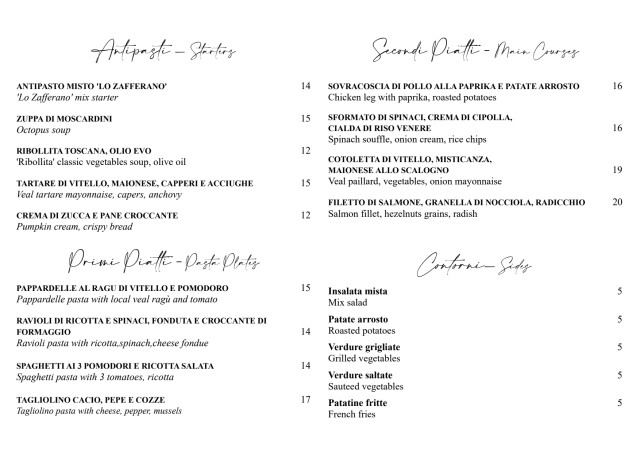 Antipasti – Starters
ANTIPASTO MISTO 'LO ZAFFERANO' 14
'Lo Zafferano' mix starter
ZUPPA DI MOSCARDINI 15
Octopus soup
RIBOLLITA TOSCANA, OLIO EVO 12
'Ribollita' classic vegetables soup, olive oil
TARTARE DI VITELLO, MAIONESE, CAPPERI E ACCIUGHE 15
Veal tartare mayonnaise, capers, anchovy
CREMA DI ZUCCA E PANE CROCCANTE 12
Pumpkin cream, crispy bread
Primi Piatti – Pasta Plates
PAPPARDELLE AL RAGU DI VITELLO E POMODORO 15
Pappardelle pasta with local veal ragù and tomato
RAVIOLI DI RICOTTA E SPINACI, FONDUTA E CROCCANTE DI
FORMAGGIO 14
Ravioli pasta with ricotta,spinach,cheese fondue
SPAGHETTI AI 3 POMODORI E RICOTTA SALATA 14
Spaghetti pasta with 3 tomatoes, ricotta
TAGLIOLINO CACIO, PEPE E COZZE 17
Tagliolino pasta with cheese, pepper, mussels
Secondi Piatti – Main Courses
SOVRACOSCIA DI POLLO ALLA PAPRIKA E PATATE ARROSTO 16
Chicken leg with paprika, roasted potatoes
SFORMATO DI SPINACI, CREMA DI CIPOLLA,
CIALDA DI RISO VENERE 16
Spinach souffle, onion cream, rice chips
COTOLETTA DI VITELLO, MISTICANZA,
MAIONESE ALLO SCALOGNO 19
Veal paillard, vegetables, onion mayonnaise
FILETTO DI SALMONE, GRANELLA DI NOCCIOLA, RADICCHIO 20
Salmon fillet, hezelnuts grains, radish
Contorni – Sides
Insalata mista 5
Mix salad
Patate arrosto 5
Roasted potatoes
Verdure grigliate 5
Grilled vegetables
Verdure saltate 5
Sauteed vegetables
Patatine fritte 5
French fries